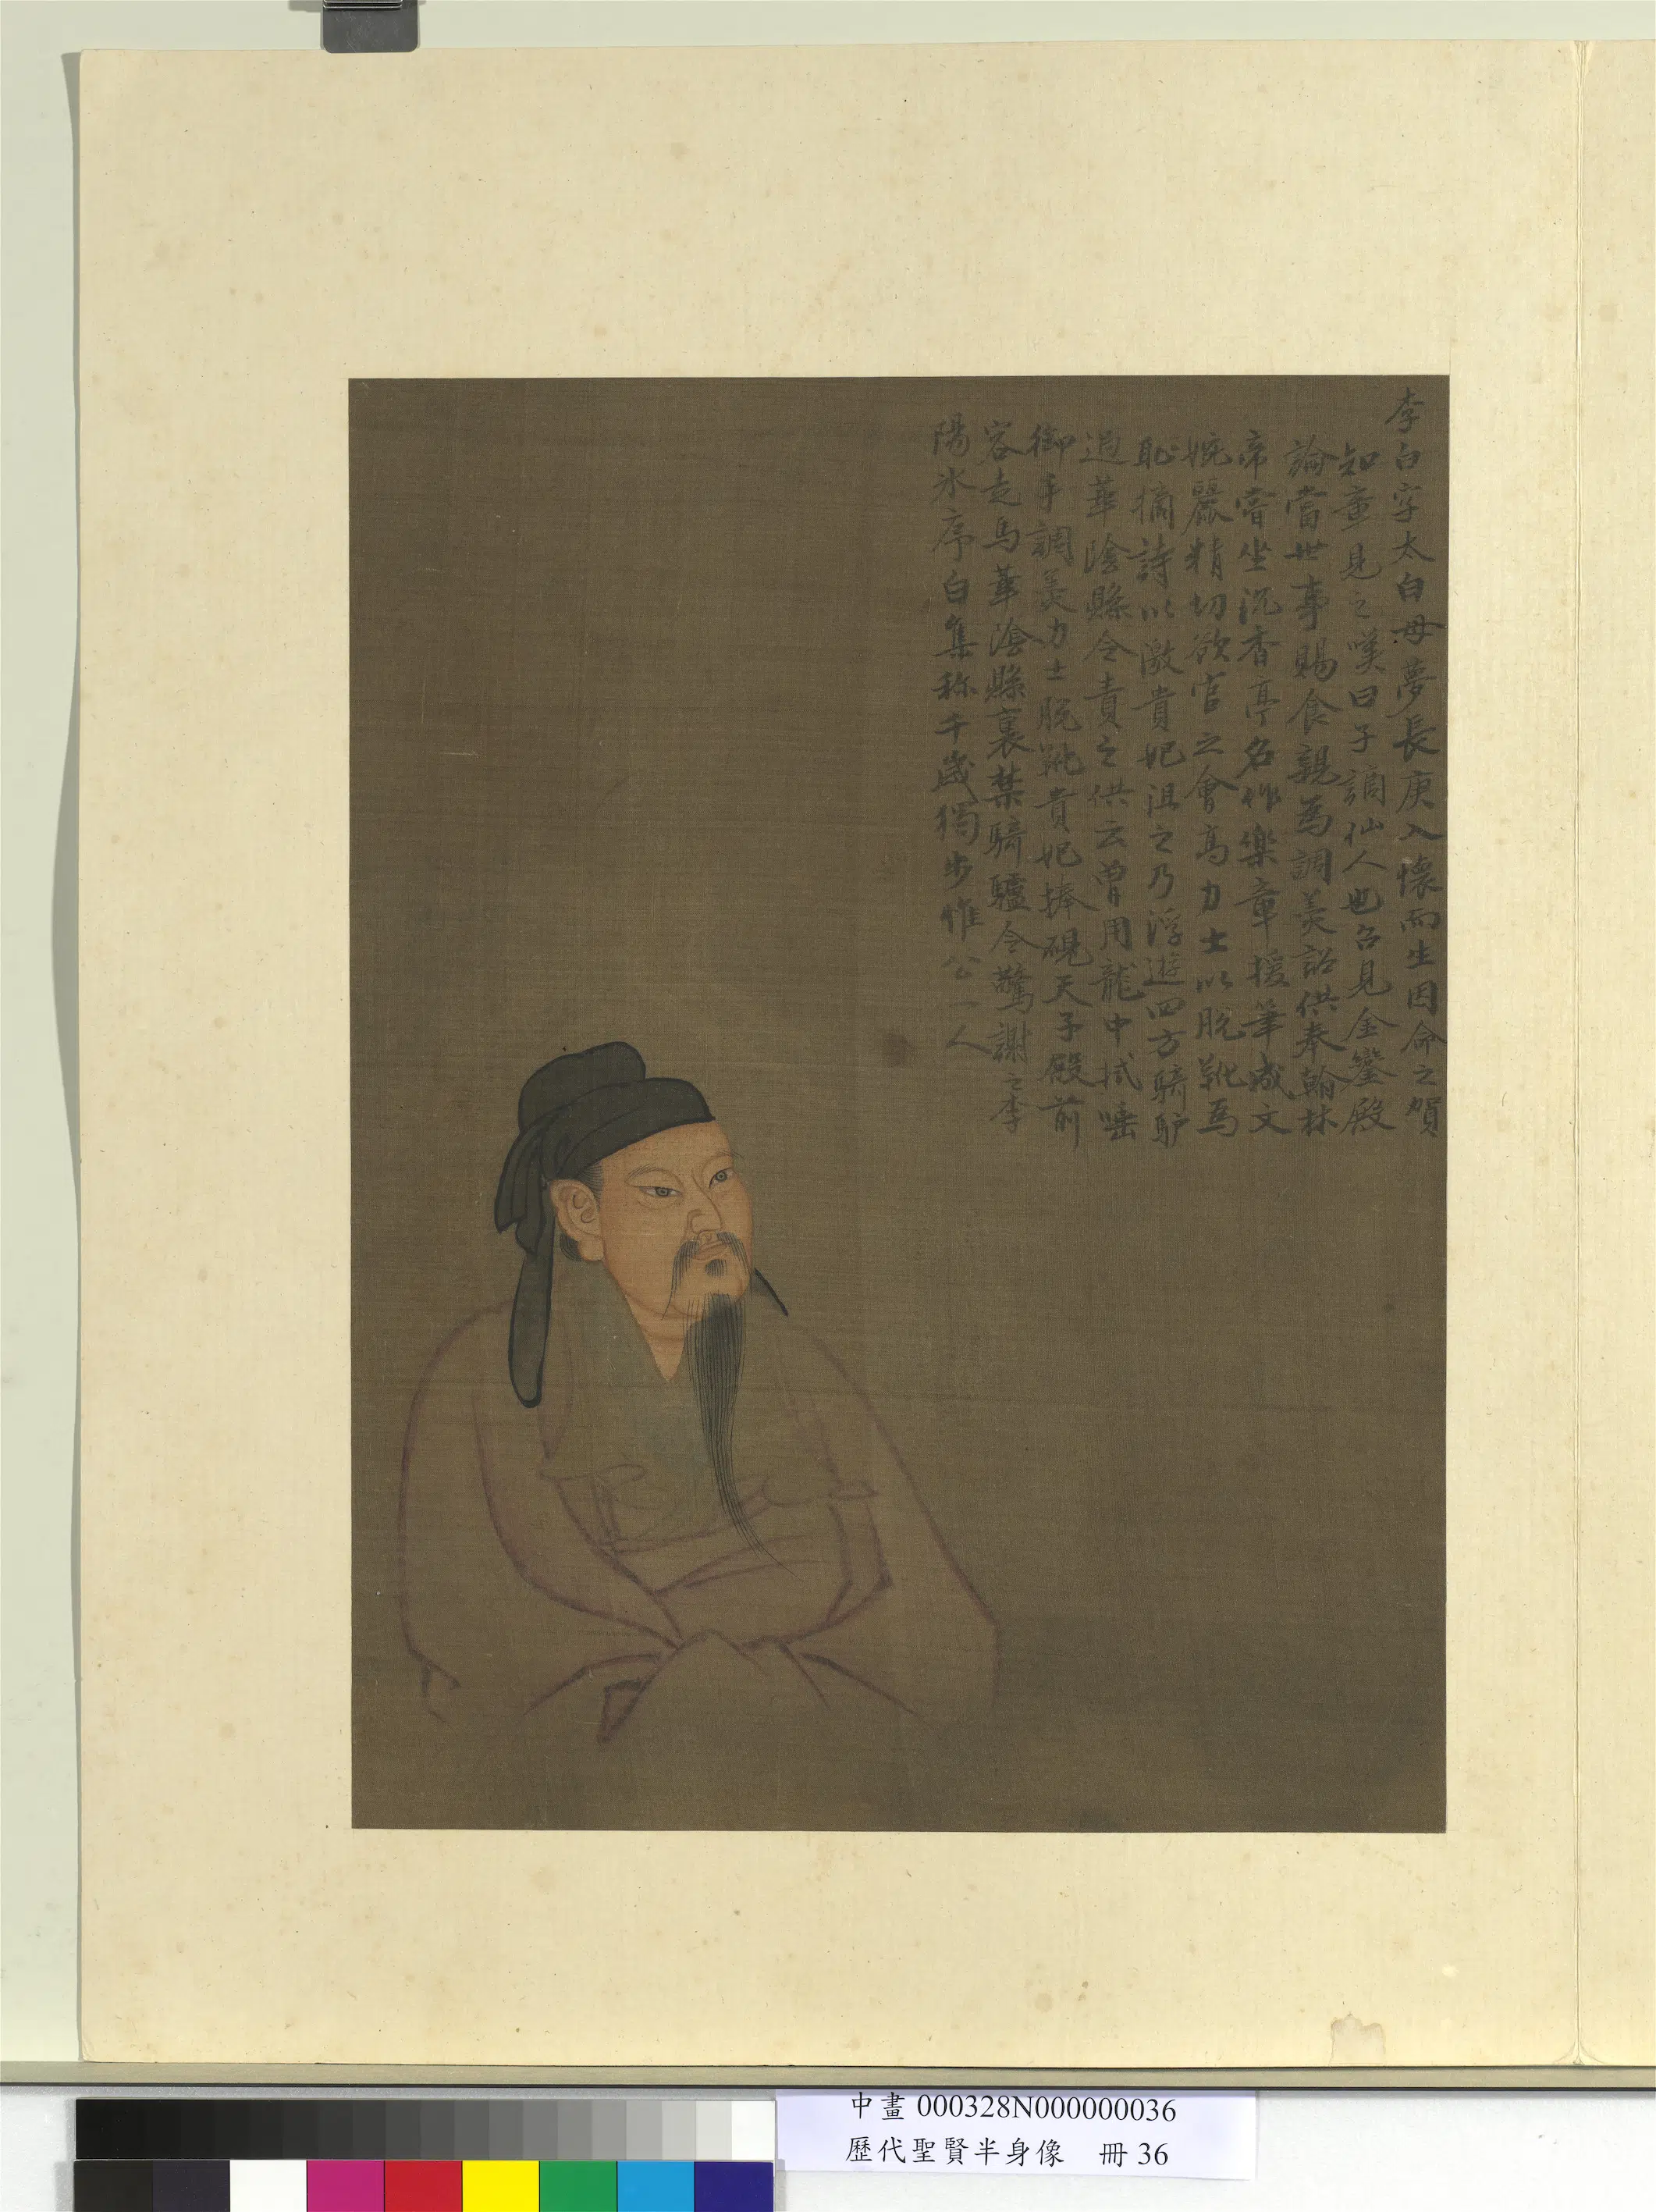 李白字太白母夢長庚入懷而生因命之賀
知章見之嘆曰子謫仙人也召見金鑾殿
論當世事賜食親為調羮詔供奉翰林
帝嘗坐沉香亭名作樂章援筆成文
婉麗精切欲官之會高力士以脫靴為
恥摘詩以激貴妃沮之乃浮遊四方騎驴
過華陰縣令責之供云曾用龍巾拭唾
御手調羮力士脫靴貴妃捧硯天子殿前
容走馬華隂縣裏禁騎驢令驚謝之李
陽氷序白集称千歲獨步惟公一人
中畫 000328N000000036
歷代聖賢半身像 冊 36